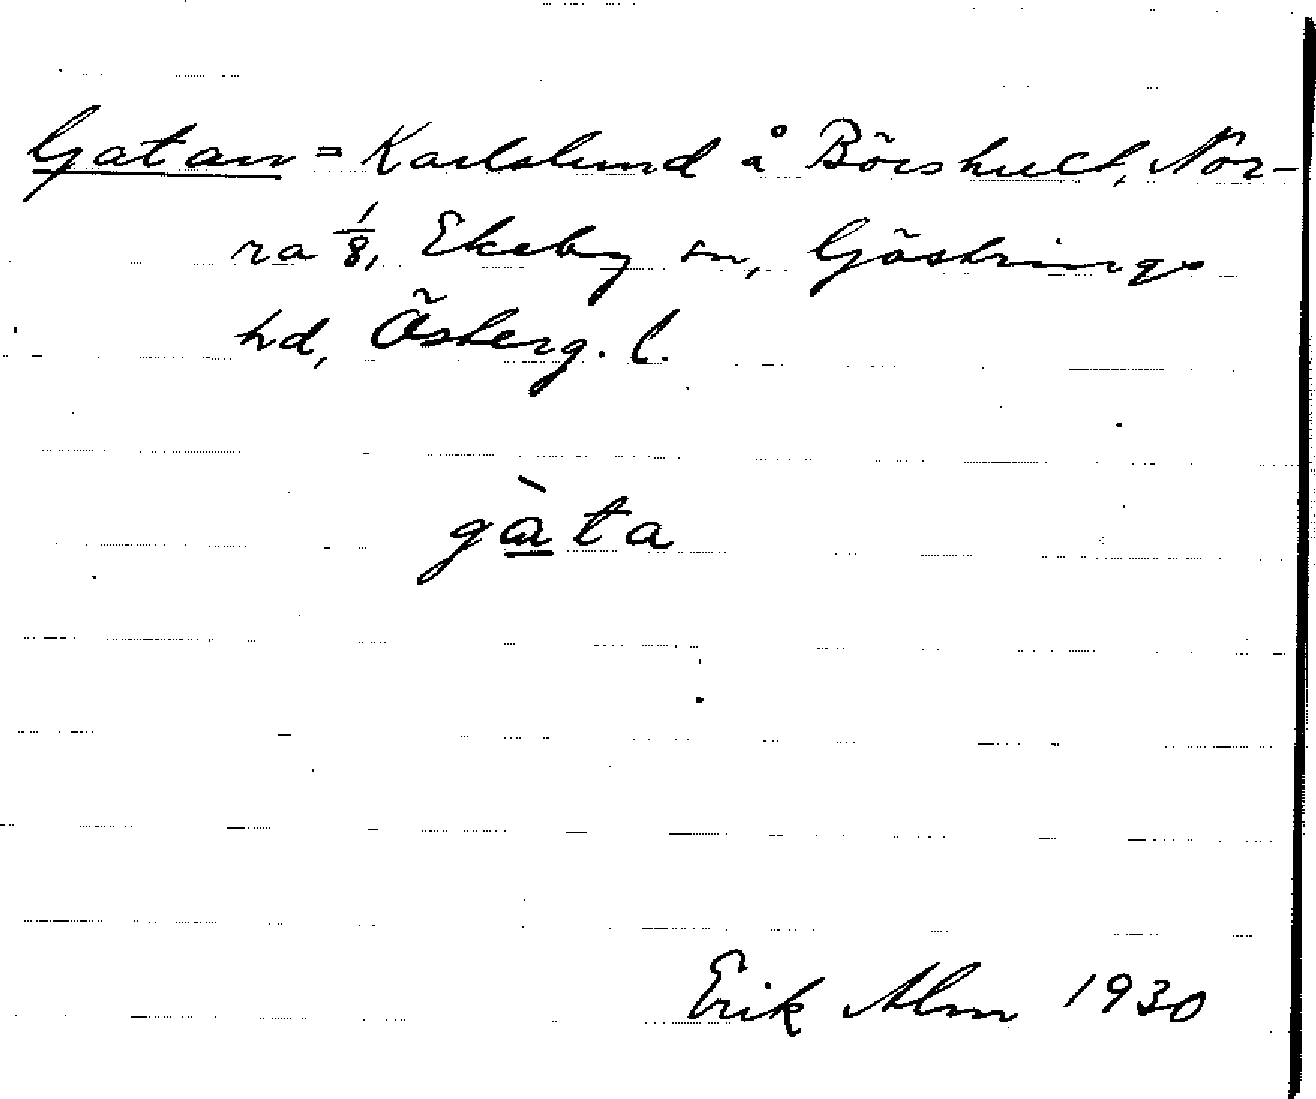 Gatan = Karlslund å Börshult, Nor-
ra 1/8, Ekeby sn, Göstrings
hd, Österg. l.
gàta
Erik Alm 1930